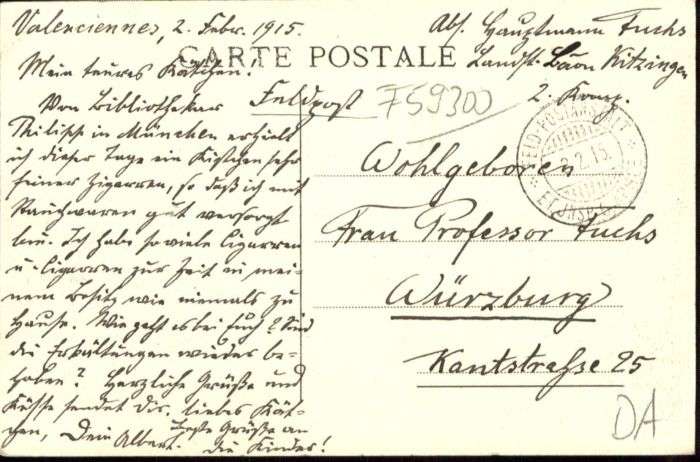 Valenciennes, 2. Febr. 1915.
CARTE POSTALE
Mein teures Kätchen!
Von Bibliothekar
Philipp in München erhielt
ich dieser Tage ein Kistchen sehr
feiner Zigarren, so daß ich mit
Rauchwaren gut versorgt
bin. Ich habe so viele Cigarren
u. Cigarren zur Zeit in mei-
nem Besitz wie niemals zu
Hause. Wie geht es bei Euch? Sind
die Erkältungen wieder be-
hoben? Herzliche Grüße und
Küsse sendet Dir, liebes Kät-
chen, Dein Albert. Beste Grüße an
die Kinder!
Abs. Hauptmann Fuchs
Landst. Baon Kitzingen
2. Komp.
Feldpost
759300
Wohlgeboren
Frau Professor Fuchs
Würzburg
Kantstrasse 25
2.2.15
DA